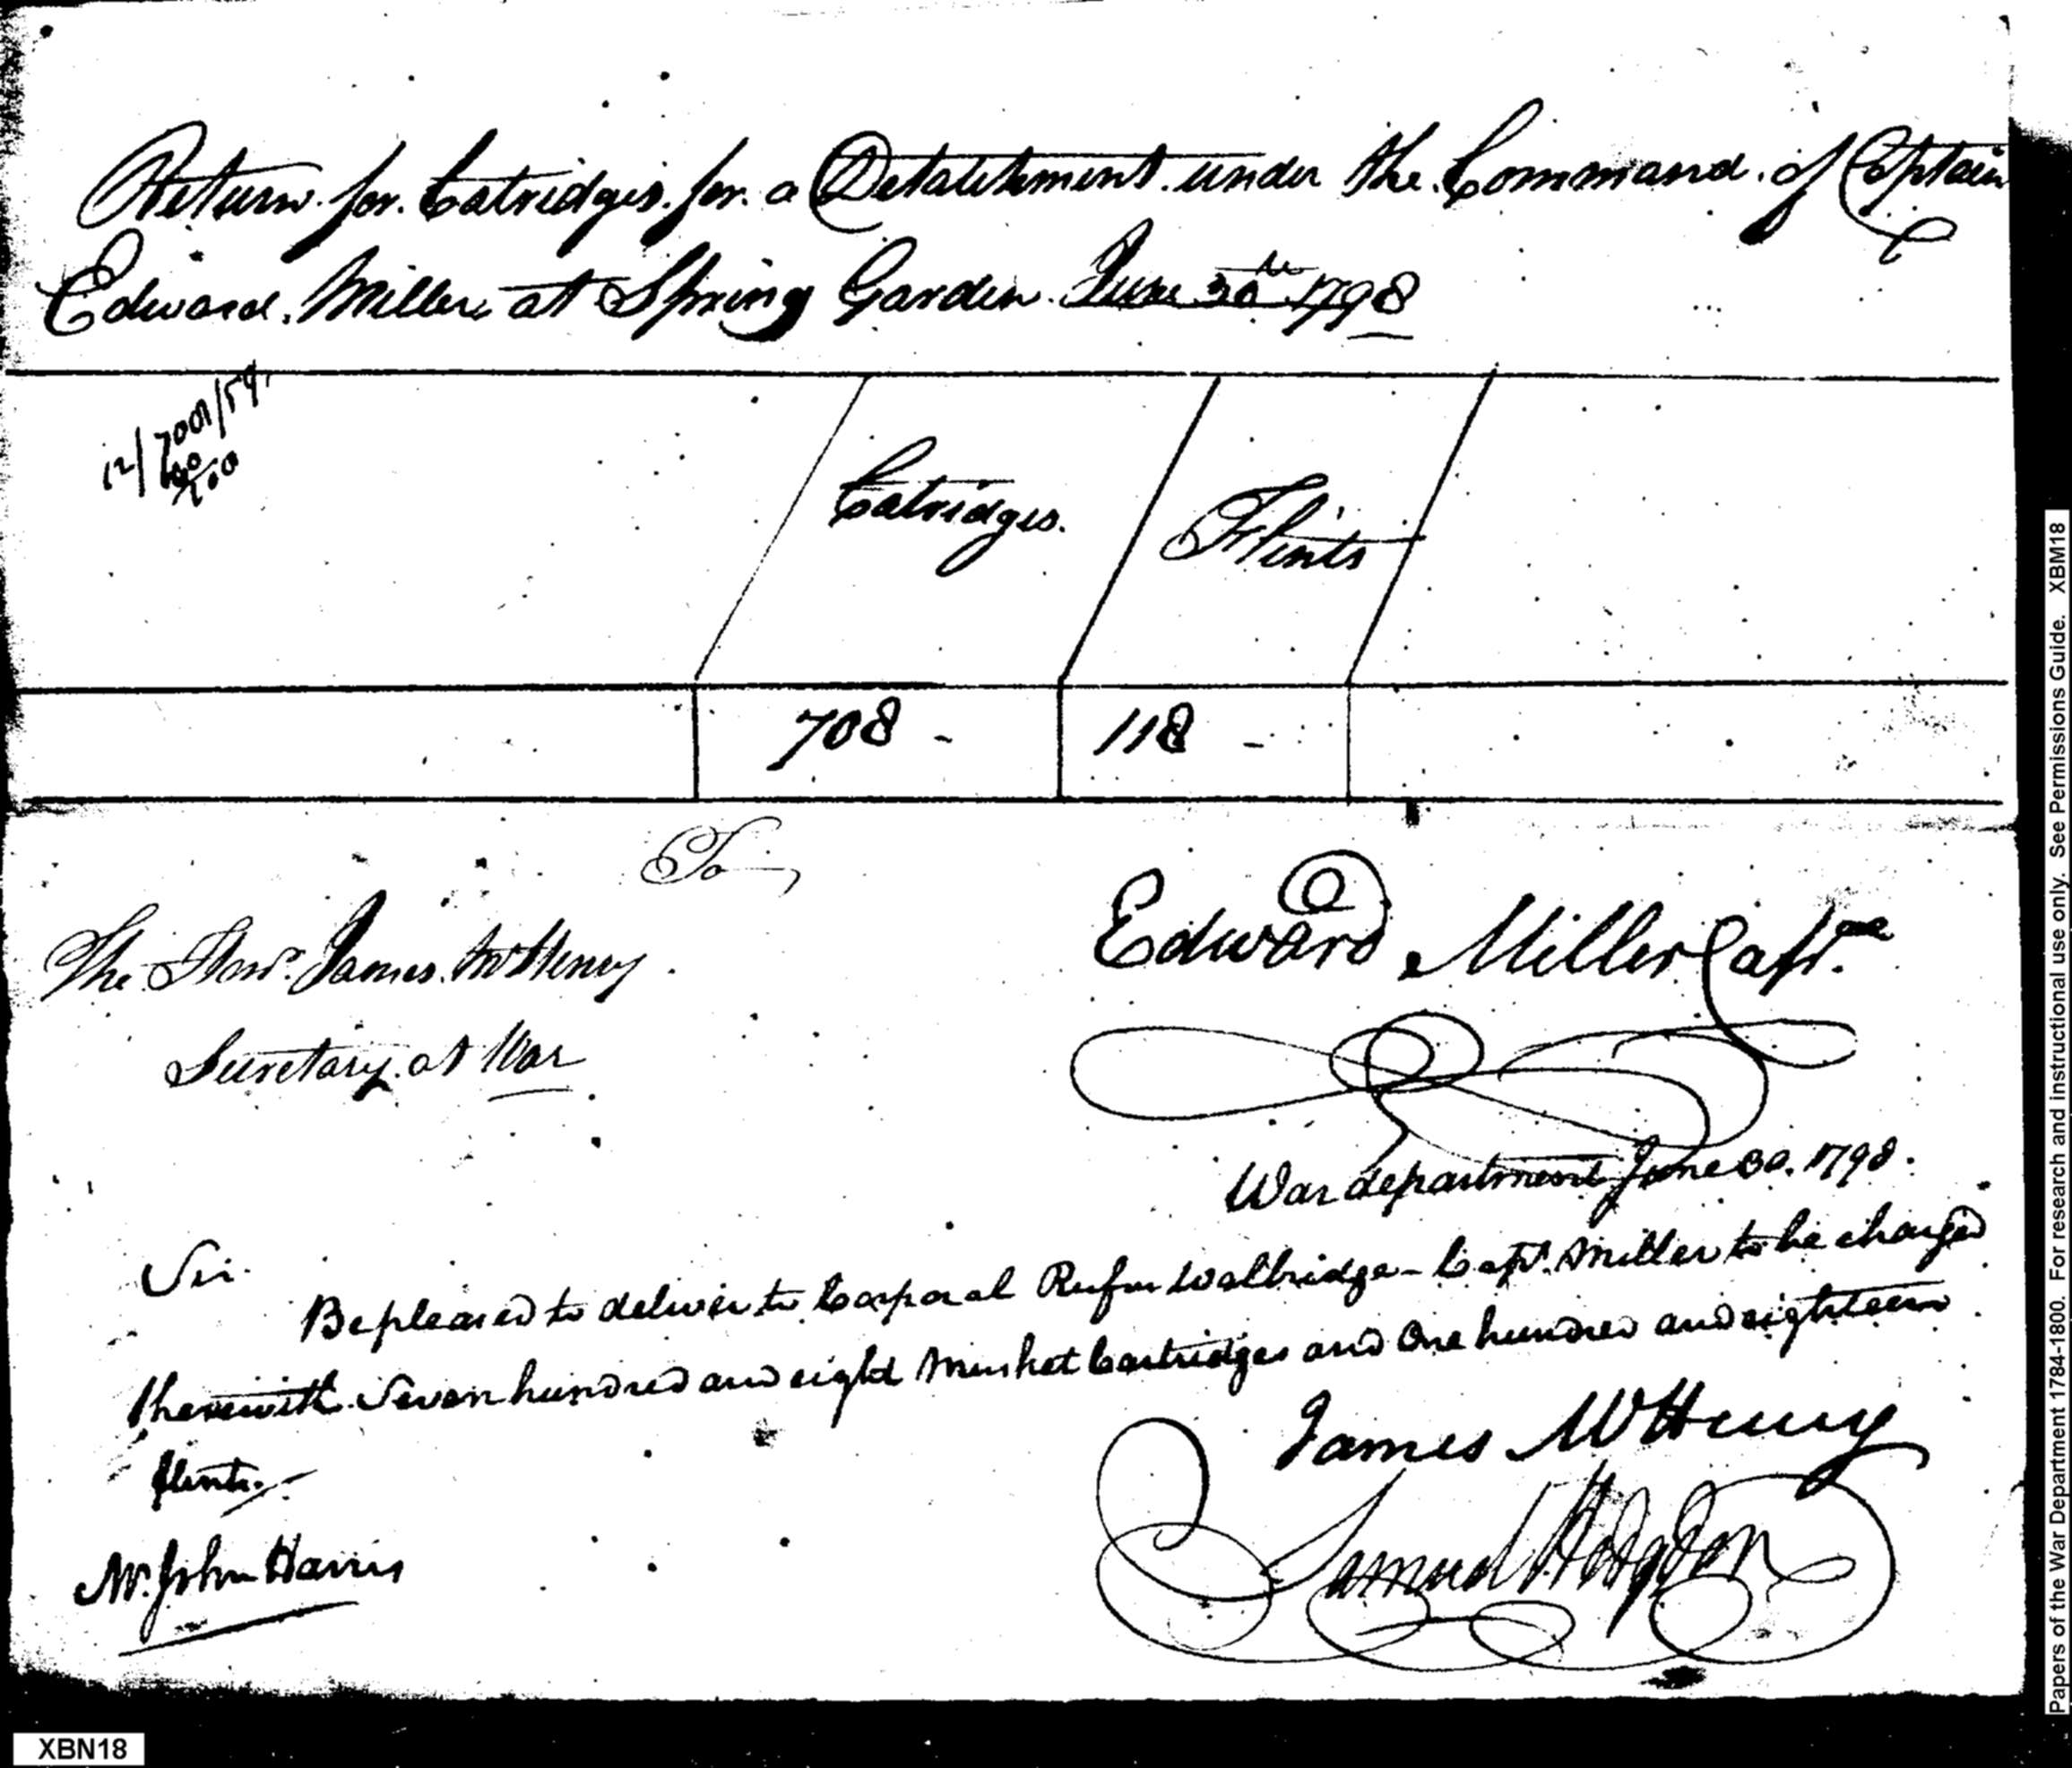 Return for Catridges for a Detatchment under the Command of Captain
Edward Miller at Spring Garden June 30th 1798
12/7001/59
60
100
Catridges
Flints
708 -
118 -
To
The Honl. James McHenry
Secretary at War
Edward Miller Capt.
War department June 30. 1798.
Sir.
Be pleased to deliver to Corporal Rufus Walbridge - Capt. Miller to be charged
therewith Seven hundred and eight Musket Cartridges and One hundred and eighteen
flints.
James McHenry
Samuel Hodgdon
Mr. John Harris
XBN18
Papers of the War Department 1784-1800. For research and instructional use only. See Permissions Guide. XBM18